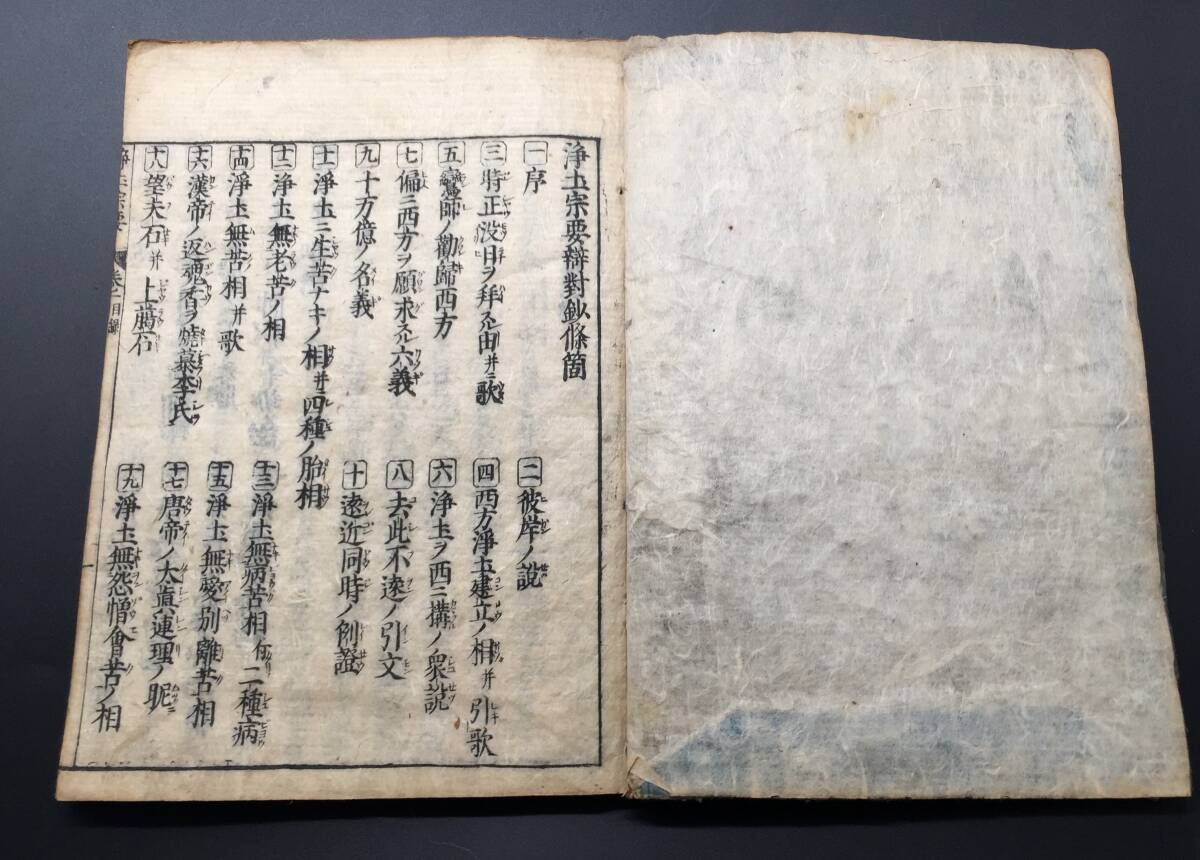 浄土宗要辯對鈔條箇
一 序
二 彼岸ノ説
三 時正没日ヲ拜スル由并ニ歌
四 西方淨土建立ノ相并引歌
五 鸞師ノ勸歸西方
六 浄土ヲ西ニ搆ノ衆説
七 偏ニ西方ヲ願求スル六義
八 去此不遠ノ引文
九 十万億ノ名義
十 遠近同時ノ例證
十一 淨土ニ生苦ナキノ相并四種ノ胎相
十二 浄土無老苦ノ相
十三 淨土無病苦相 二種病
十四 淨土無苦相并歌
十五 淨土無愛別離苦相
十六 漢帝ノ返魂香ヲ燒慕李氏
十七 唐帝ノ太眞連理ノ昵
十八 望夫石并上臈石
十九 淨土無怨憎會苦ノ相
淨土宗要 卷一目録